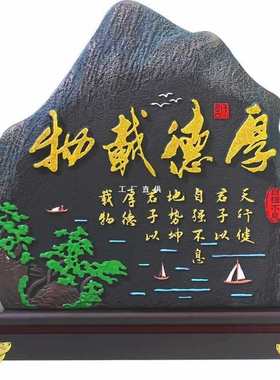 厚德載物
天行健
君子以
自强不息
地势坤
君子以
厚德
载物
工厂直供